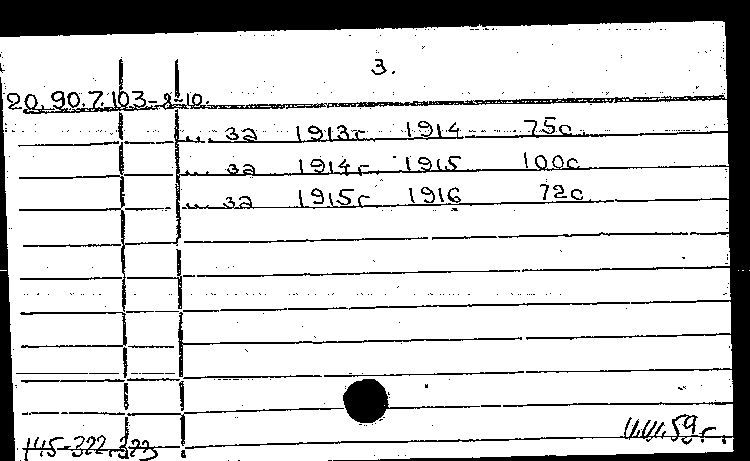 3.
20.90.7.103-8-10.
... за 1913г. 1914 75с.
... за 1914г. 1915 100с.
... за 1915г 1916 72с.
145-322,323